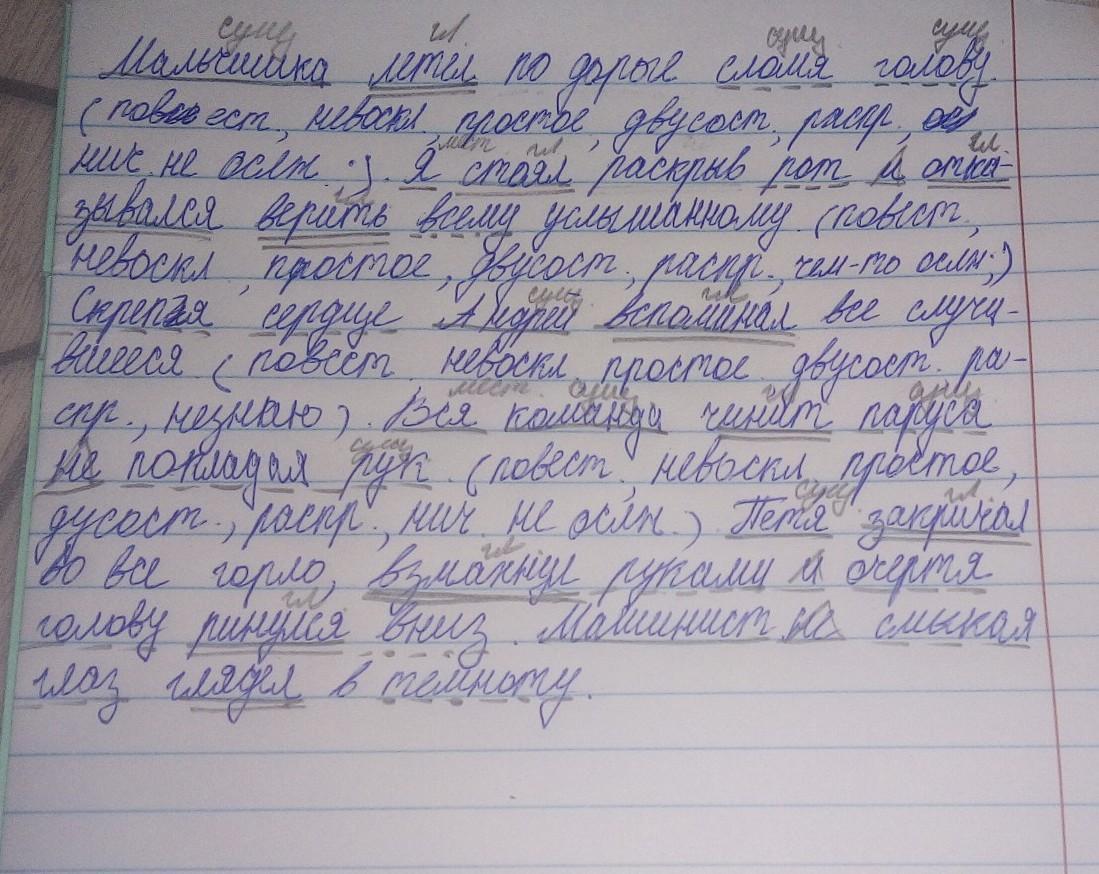 сущ гл. сущ сущ
Мальчишка летел по дороге сломя голову
(повест, невоскл, простое, двусост, распр,
нич. не ослн.;). Я стоял раскрыв рот и отка-
мест гл. гл.
зывался верить всему услышанному (повест,
гл
невоскл, простое, двусост., распр., чем-то ослн;)
Скрепя сердце Андрей вспоминал все случи-
сущ. гл
вшееся (повест. невоскл. простое двусост. ра-
спр., незнаю). Вся команда чинит паруса
мест. сущ. гл сущ
не покладая рук (повест, невоскл простое,
сущ
дусост., распр., нич. не ослн.) Петя закричал
сущ. гл.
во все горло, взмахнул руками и очертя
гл
голову ринулся вниз. Машинист не смыкая
гл
глаз глядел в темноту.